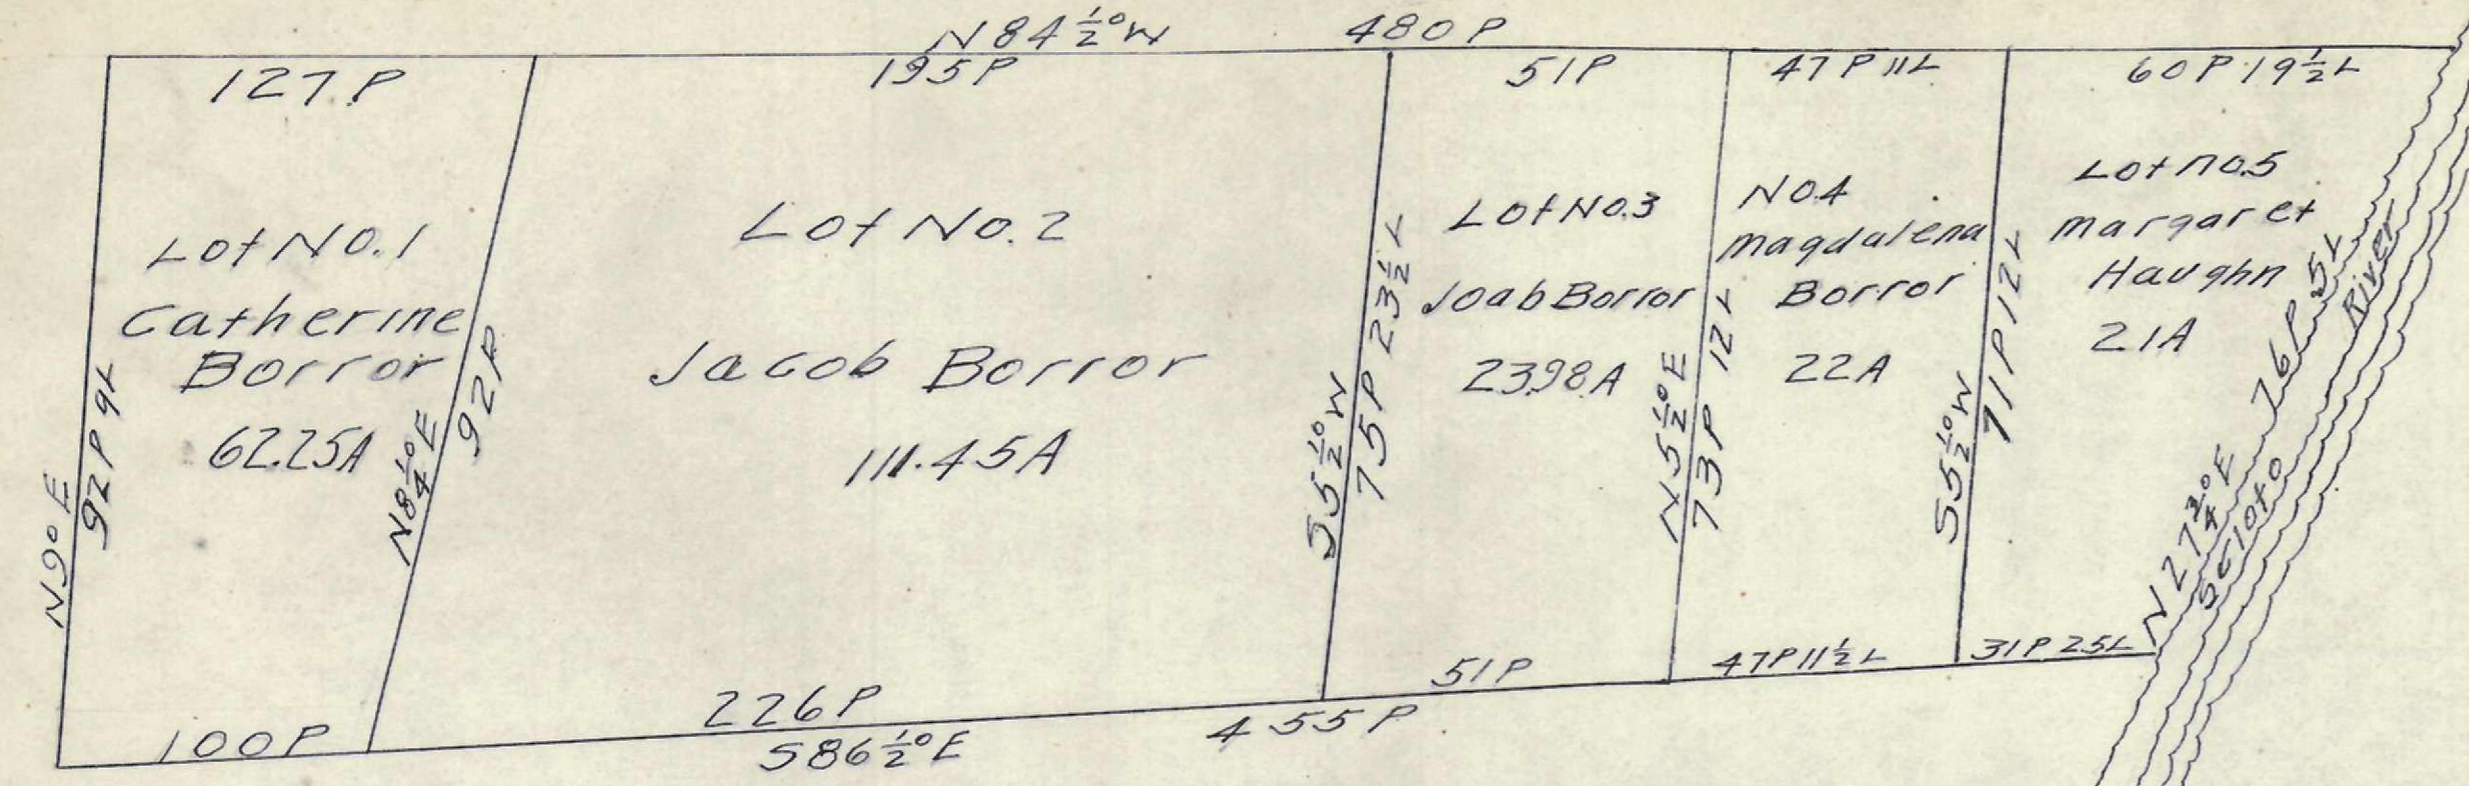 N 84 1/2° W 480 P
127 P 195 P 51 P 47 P 11 L 60 P 19 1/2 L
Lot No. 1
Catherine
Borror
62.25 A
N 9° E
92 P 9 L
N 8 1/4° E
92 P
Lot No. 2
Jacob Borror
111.45 A
S 5 1/2° W
75 P 23 1/2 L
Lot No. 3
Joab Borror
23.98 A
N 5 1/2° E
73 P 12 L
No 4
Magdalena
Borror
22 A
S 5 1/2° W
71 P 12 L
Lot no. 5
margaret
Haughn
21 A
N 27 3/4° E 76 P 5 L
Scioto River
100 P 226 P 51 P 47 P 11 1/2 L 31 P 25 L
S 86 1/2° E 455 P